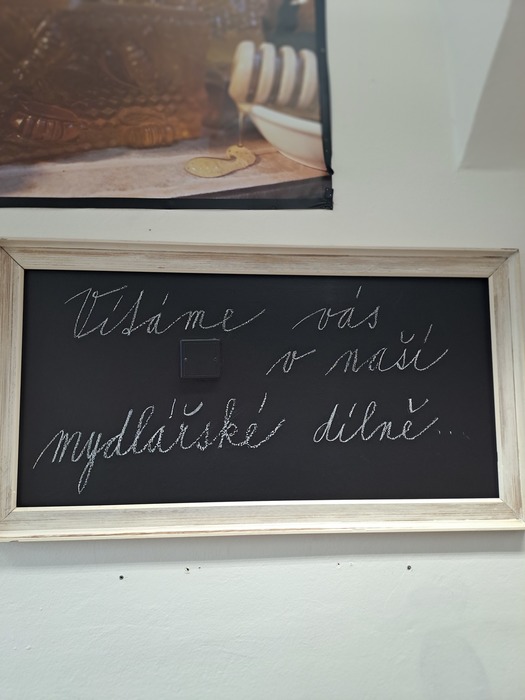 Vítáme vás
v naší
mydlářské dílně...